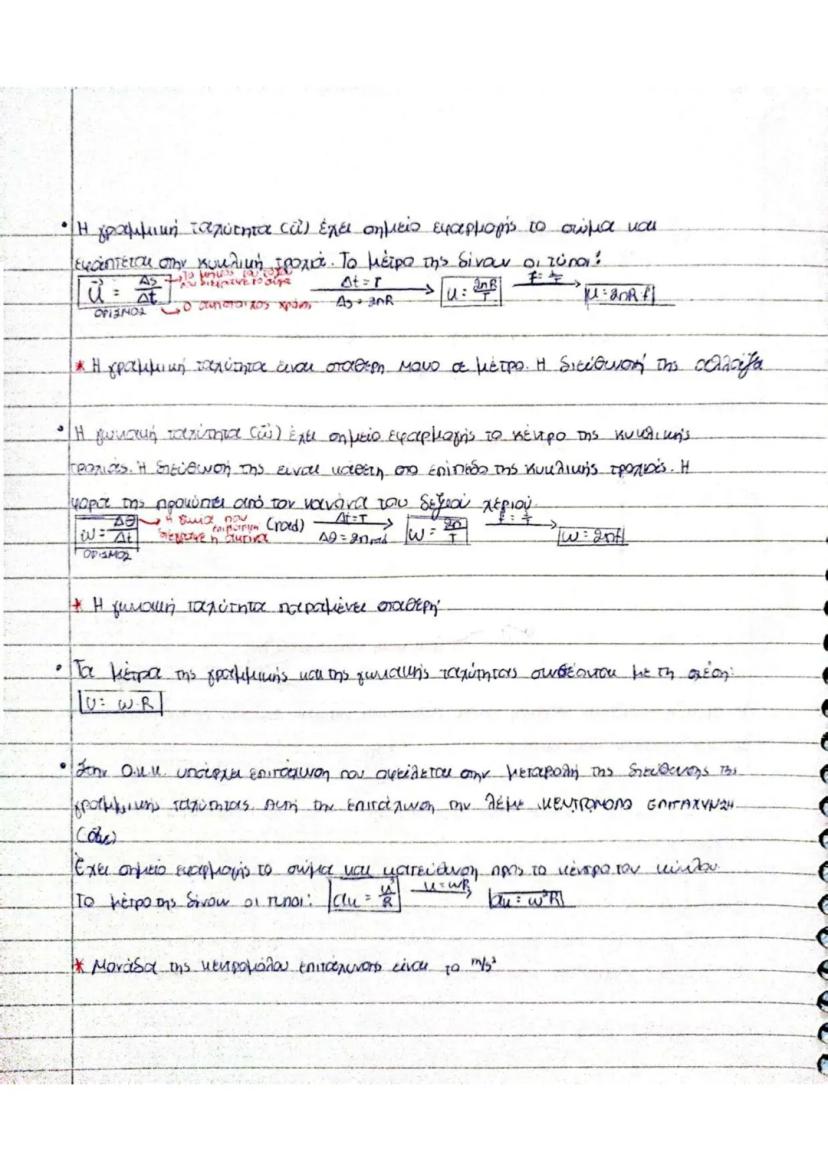 • Η γραμμική ταχύτητα (υ⃗) έχει σημείο εφαρμογής το σώμα και
εφάπτεται στην κυκλική τροχιά. Το μέτρο της δίνουν οι τύποι:
υ⃗ = Δs/Δt → Το μήκος του τόξου που διέγραψε το σώμα → Ο αντίστοιχος χρόνος Δt=T Δs=2πR → υ=2πR/T f=1/T → υ=2πR·f
ΟΡΙΣΜΟΣ
* Η γραμμική ταχύτητα είναι σταθερή μόνο σε μέτρο. Η διεύθυνσή της αλλάζει
• Η γωνιακή ταχύτητα (ω⃗) έχει σημείο εφαρμογής το κέντρο της κυκλικής
τροχιάς. Η διεύθυνσή της είναι κάθετη στο επίπεδο της κυκλικής τροχιάς. Η
φορά της προκύπτει από τον κανόνα του δεξιού χεριού.
ω=Δθ/Δt → η γωνία που διέγραψε η ακτίνα (rad) Δt=T Δθ=2πrad → ω=2π/T f=1/T → ω=2πf
ΟΡΙΣΜΟΣ
* Η γωνιακή ταχύτητα παραμένει σταθερή
• Τα μέτρα της γραμμικής και της γωνιακής ταχύτητας συνδέονται με τη σχέση:
υ= ω·R
• Στην Ο.κ.κ. υπάρχει επιτάχυνση που οφείλεται στην μεταβολή της διεύθυνσης της
γραμμικής ταχύτητας. Αυτή την επιτάχυνση την λέμε ΚΕΝΤΡΟΜΟΛΟ ΕΠΙΤΑΧΥΝΣΗ
(α⃗κ)
Έχει σημείο εφαρμογής το σώμα και κατεύθυνση προς το κέντρο του κύκλου.
Το μέτρο της δίνουν οι τύποι: ακ = υ²/R υ=ωR → ακ=ω²R
* Μονάδα της κεντρομόλου επιτάχυνσης είναι το m/s²